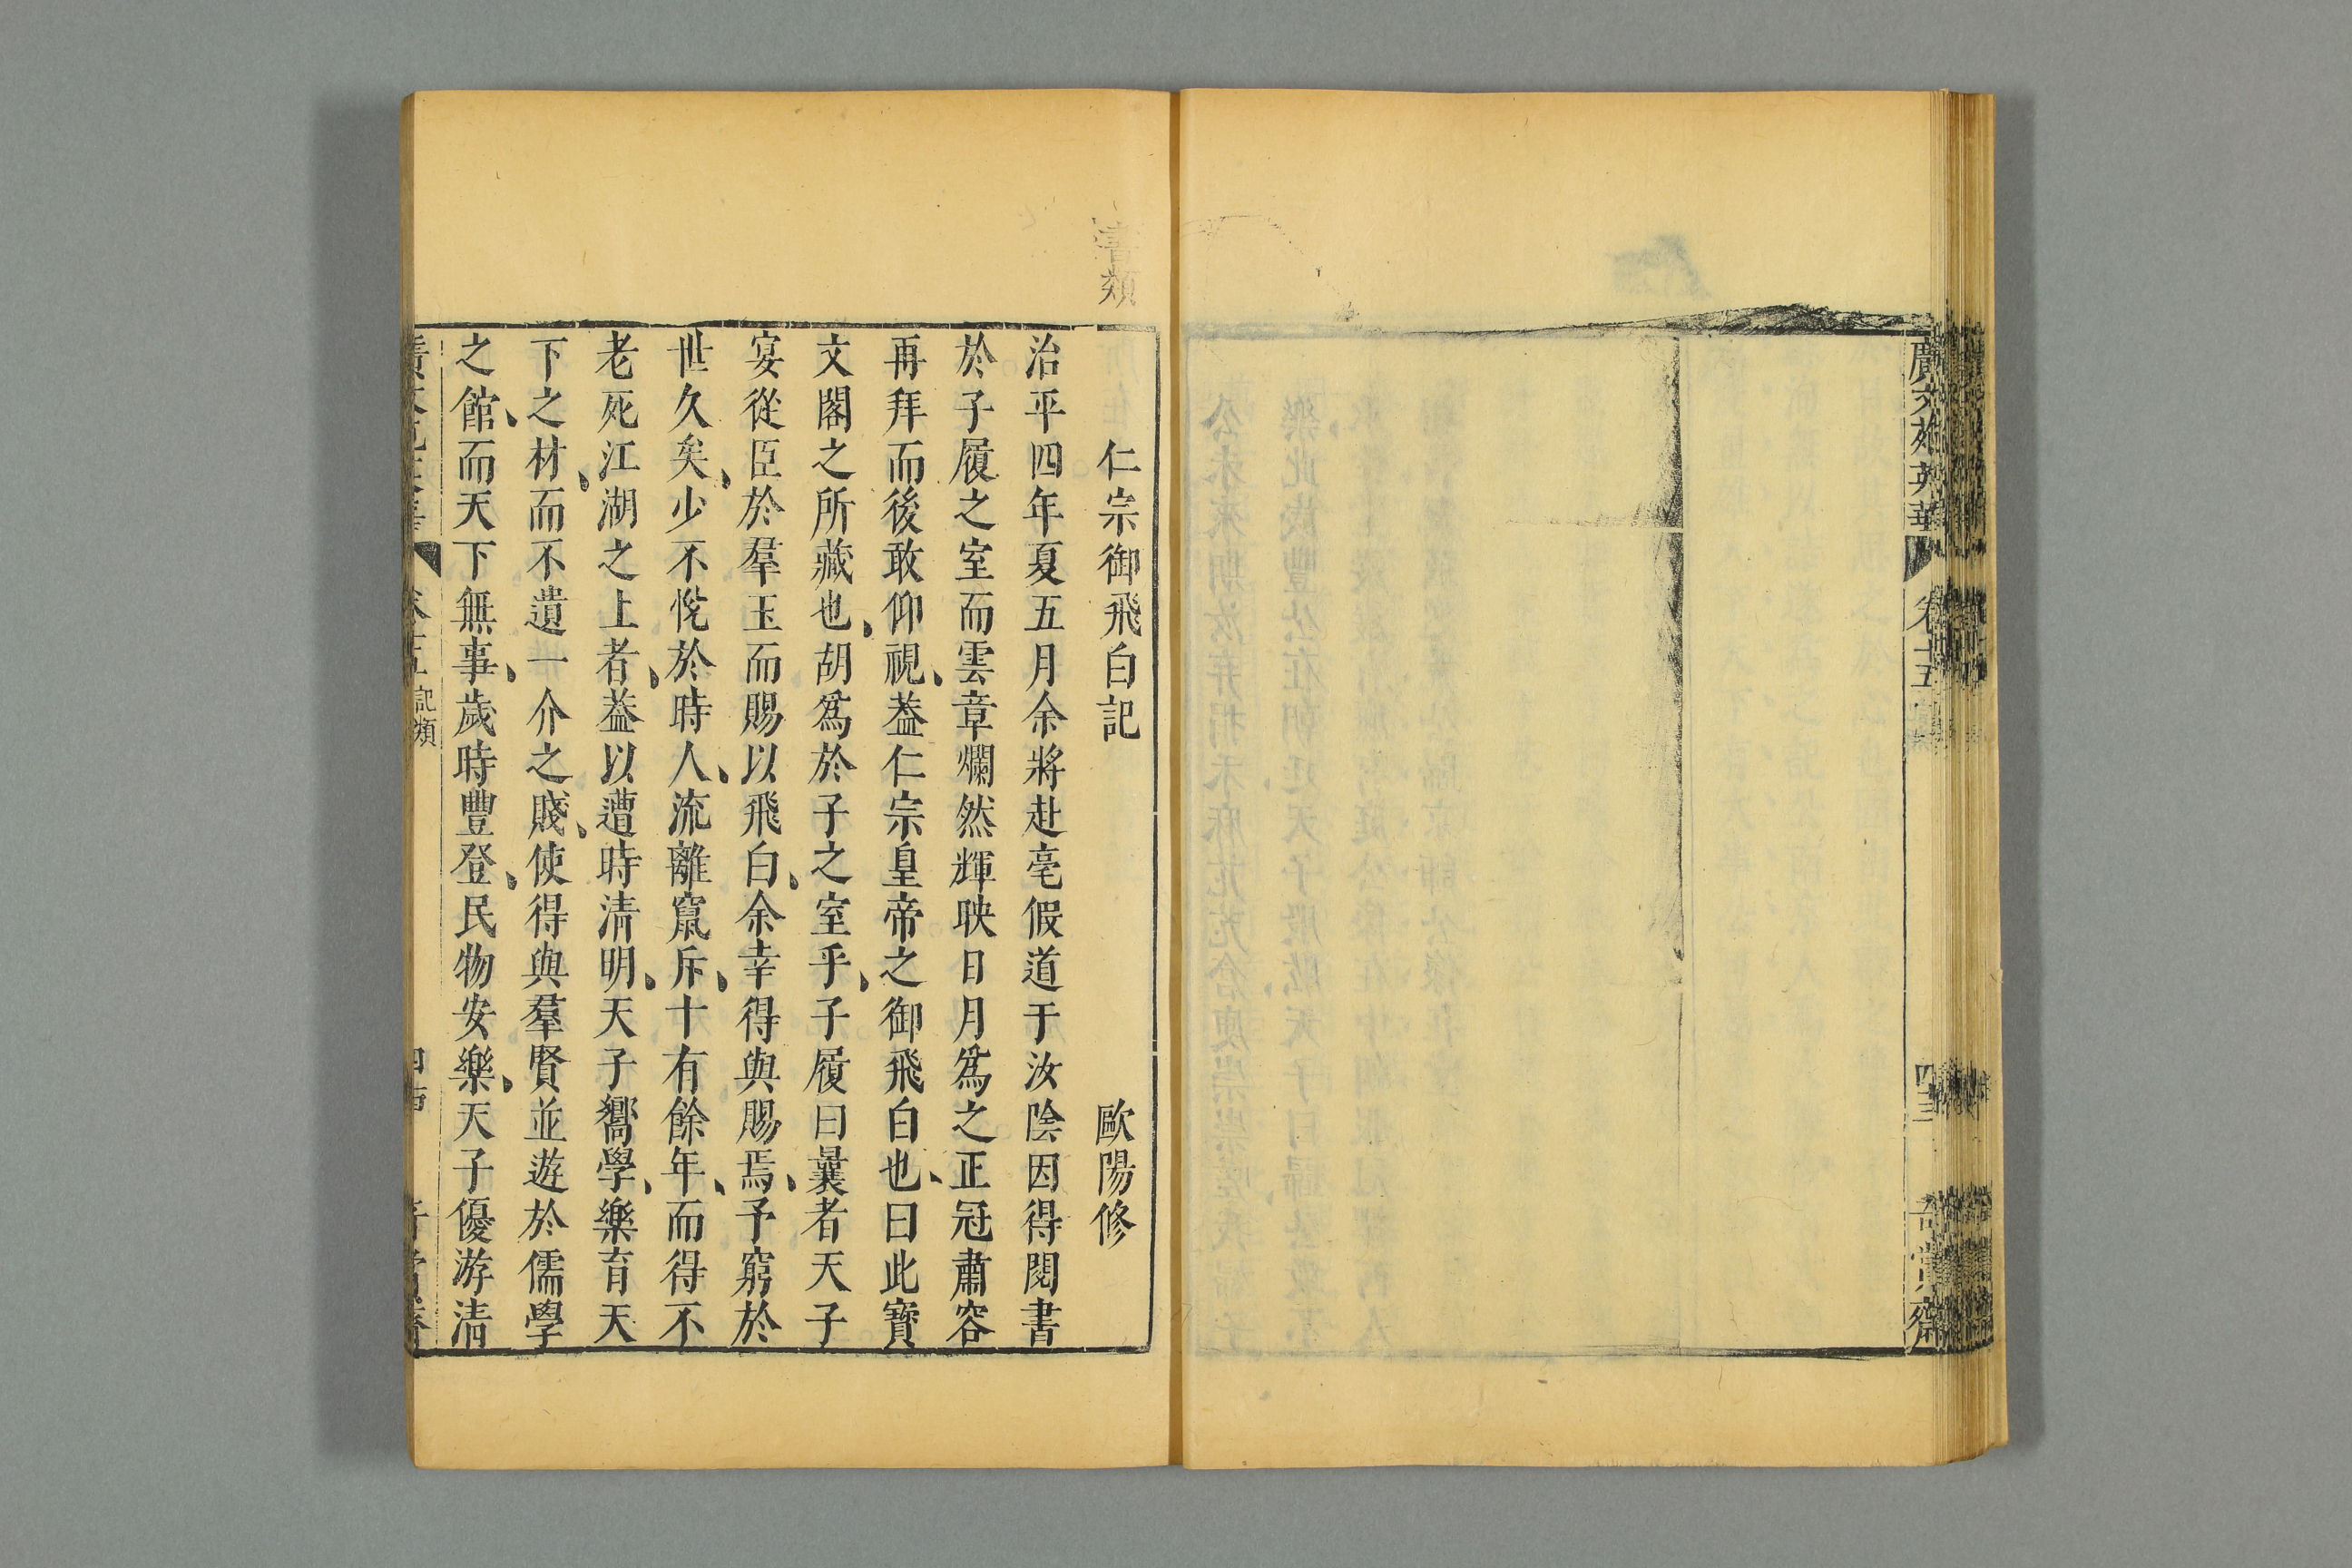 廣文苑英華
卷十五
四十三
奇賞齋
書類
仁宗御飛白記
歐陽修
治平四年夏五月余將赴亳假道于汝陰因得閱書
於子履之室而雲章爛然輝映日月爲之正冠肅容
再拜而後敢仰視葢仁宗皇帝之御飛白也曰此寶
文閣之所藏也胡爲於子之室乎子履曰曩者天子
宴從臣於羣玉而賜以飛白余幸得與賜焉予窮於
世久矣少不悅於時人流離竄斥十有餘年而得不
老死江湖之上者葢以遭時清明天子嚮學樂育天
下之材而不遺一介之賤使得與羣賢並遊於儒學
之館而天下無事歲時豐登民物安樂天子優游清
記類